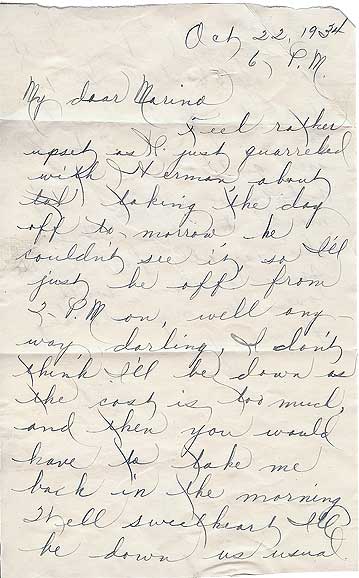 Oct, 22, 1934
6, P.M.
My dear Marino
Feel rather
upset as I just quarreled
with Herman about
taking the day
off to-morrow he
couldn't see it, so I'll
just be off from
P.M on, well any-
way darling, I don't
think I'll be down as
the cost is too much,
and then you would
have to take me
back in the morning
Well sweetheart I'll
be down as usual